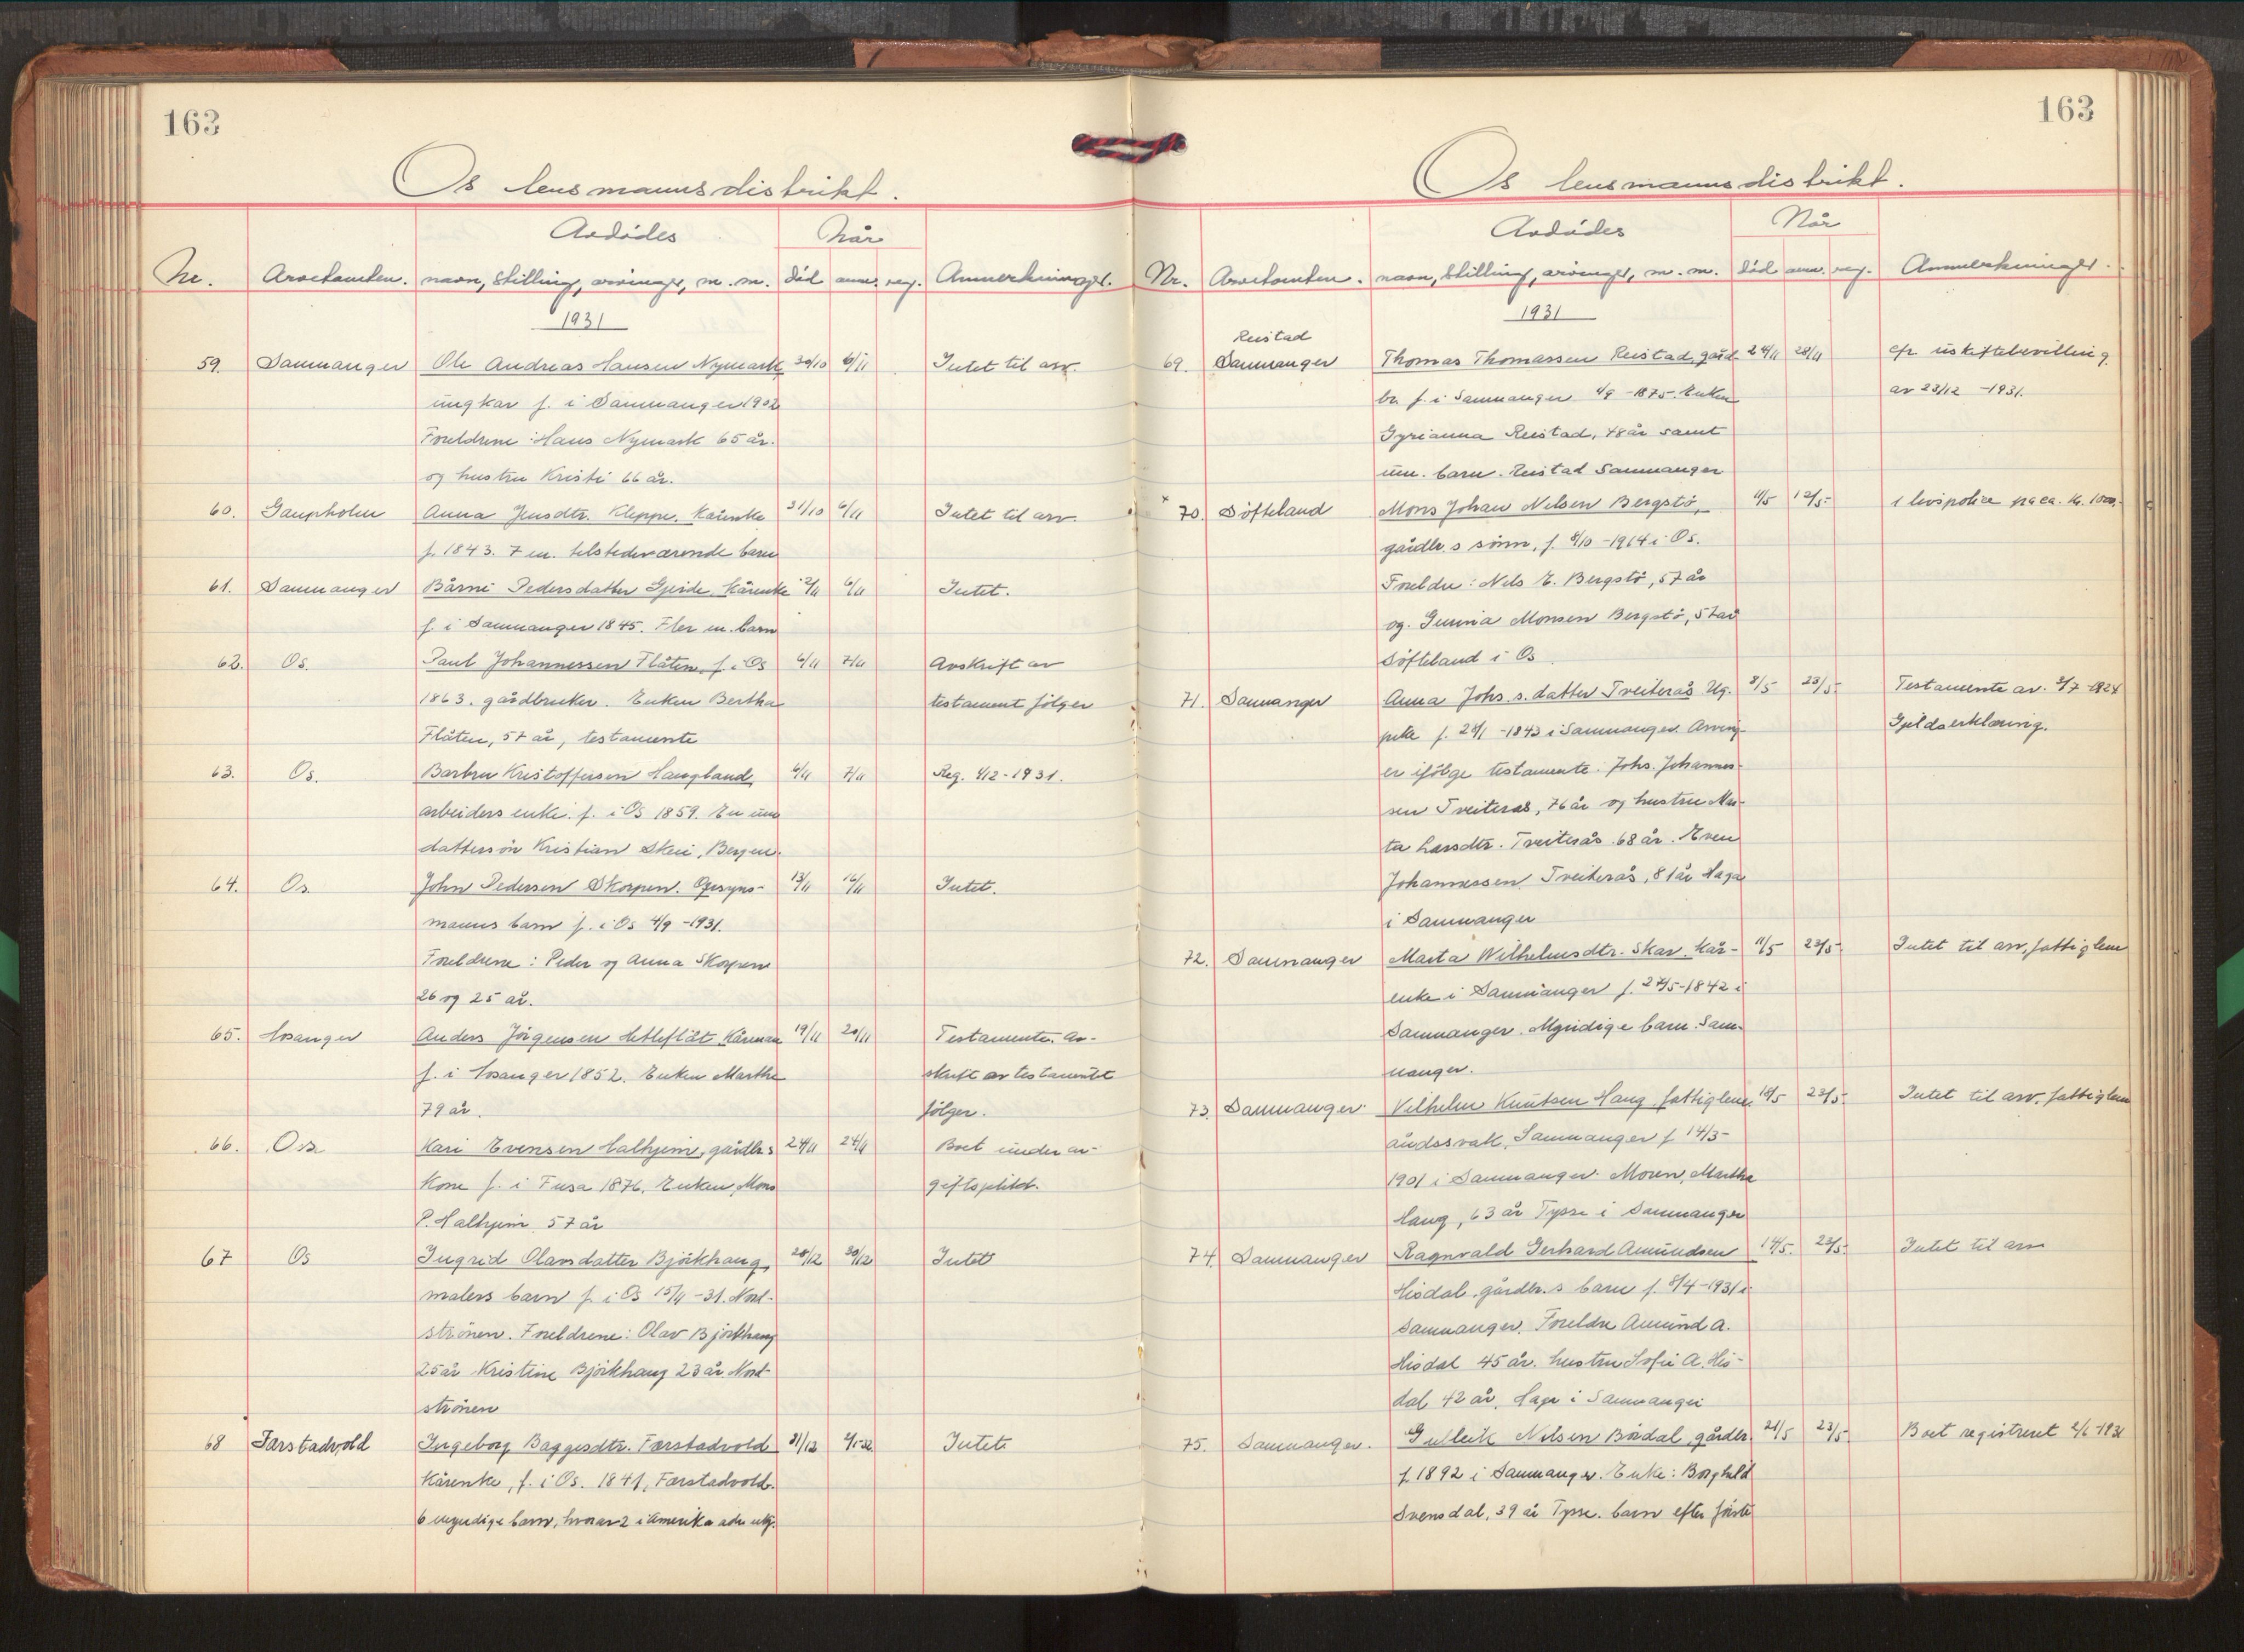 163
Os lensmannsdistrikt.
Avdödes
Når
Nr. Arvetomten. navn, stilling, arvinger, m. m. död anm. reg. Anmerkninger.
1931
59. Samnanger Ole Andreas Hansen Nymark, 30/10 6/11 Intet til arv.
ungkar f. i Samnanger 1902
Foreldrene: Hans Nymark 65 år.
og hustru Kristi 66 år.
60. Gaupholm Anna Jensdtr. Kleppe. Kårenke 31/10 6/11 Intet til arv.
f. 1843. 7 m. tilstedeværende barn
61. Samnanger Bårni Pedersdatter Gjerde. Kårenke 2/11 6/11 Intet.
f. i Samnanger 1845. Fler m. barn
62. Os. Paul Johannessen Flåten f. i Os 6/11 7/11 Avskrift av
1863. gårdbruker. Enken Bertha testament fölger
Flåten, 57 år, testamente
63. Os. Barbru Kristoffersen Haugland, 6/11 7/11 Reg. 4/12-1931.
arbeiders enke. f. i Os 1859. En um
dattersön Kristian Skei, Bergen.
64. Os. John Pedersen Skorpen. Opsyns- 13/11 16/11 Intet.
manns barn f. i Os 4/9-1931.
Foreldrene: Peder og Anna Skorpen
26 og 25 år.
65. Hosanger Anders Jörgensen Hetleflåt Kårmann 19/11 20/11 Testamente. Av-
f. i Hosanger 1852. Enken Marthe skrift av testamentet
79 år. fölger.
66. Os. Kari Evensen Halhjem, gårdbr.s 24/11 24/11 Boet under av-
Kone f. i Fusa 1876, Enken, Mons giftsplikt.
P. Halhjem 57 år
67 Os Ingrid Olavsdatter Björkhaug, 28/12 30/12 Intet
malers barn f. i Os 15/11-31. Nord-
strönen. Foreldrene: Olav Björkhaug
25 år Kristine Björkhaug 23 år. Nord-
strönen
68 Farstadvold Ingeborg Baggesdtr. Farstadvold 31/12 4/1-32 Intet
Kårenke, f. i Os. 1841, Farstadvold.
6 myndige barn, hvorav 2 i Amerika adr. ukj.
163
Os lensmannsdistrikt.
Avdödes
Når
Nr. Arvetomten. navn, stilling, arvinger, m. m. död anm. reg. Anmerkninger.
1931
Reistad
69. Samnanger Thomas Thomassen Reistad, gård- 24/11 28/11 cfr uskiftebevilling
br. f. i Samnanger 4/9-1875. Enken av 23/12-1931.
Gyrianna Reistad, 48 år samt
um. barn. Reistad Samnanger
70. Söfteland Mons Johan Nilsen Bergstö, 11/5 12/5- 1 livspolice på ca. kr. 1000.-
gårdbr.s sönn, f. 8/10-1914 i Os.
Foreldre: Nils E. Bergstö, 57 år
og. Gurina Monsen Bergstö, 57 år
Söfteland i Os
71. Samnanger Anna Johs.s.datter Treiterås Ug. 8/5 23/5- Testamente av. 2/7-1924
pike f. 24/1-1843 i Samnanger. Arving- Gjeldserklæring.
er ifölge testamente: Johs. Johannes-
sen Treiterås, 76 år og hustru Mar-
ta Larsdtr. Treiterås 68 år. Even
Johannessen Treiterås, 81 år Haga
i Samnanger
72. Samnanger Marta Wilhelmsdtr. Skar. Kår- 11/5 23/5- Intet til arv, fattiglem
enke i Samnanger f. 27/5-1842 i
Samnanger. Myndige barn. Sam-
nanger.
73. Samnanger Vilhelm Knutsen Haug fattiglem 10/5 23/5- Intet til arv. fattiglem
åndssvak, Samnanger f 14/3-
1901 i Samnanger. Moren, Martha
Haug, 63 år Tysse i Samnanger
74. Samnanger Ragnvald Gerhard Amundsen 14/5. 23/5- Intet til arv
Hisdal, gårdbr.s barn f. 8/4-1931 i
Samnanger. Foreldre Amund A.
Hisdal 45 år. hustru Sofie A. His-
dal 42 år, Haga i Samnanger
75. Samnanger. Gulleik Nilsen Birdal, gårdbr. 21/5 23/5. Boet registreret 2/6-1931
f. 1892 i Samnanger. Enke: Borghild
Svensdal, 39 år Tysse. barn efter förste